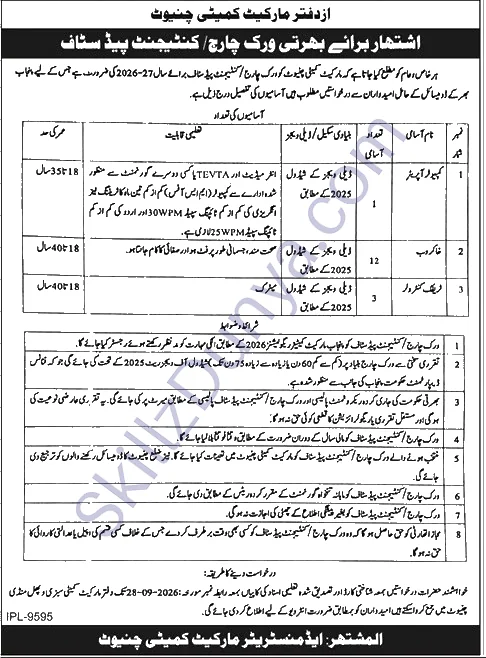 از دفتر مارکیٹ کمیٹی چنیوٹ
اشتہار برائے بھرتی ورک چارج/ کنٹیجنٹ پیڈ سٹاف
ہر خاص و عام کو مطلع کیا جاتا ہے کہ مارکیٹ کمیٹی چنیوٹ کو ورک چارج/کنٹیجنٹ پیڈ سٹاف برائے سال 27-2026 کی ضرورت ہے جس کے لیے پنجاب
بھر کے ڈومیسائل کے حامل امیدواران سے درخواستیں مطلوب ہیں آسامیوں کی تفصیل درج ذیل ہے۔
آسامیوں کی تعداد
نمبر شمار نام آسامی تعداد آسامی بنیادی سکیل/ ڈیلی ویجز تعلیمی قابلیت عمر کی حد
1 کمپیوٹر آپریٹر 1 ڈیلی ویجز کے شیڈول 2025 کے مطابق انٹر میڈیٹ اور TEVTA یا کسی دوسرے گورنمنٹ سے منظور 18 تا 35 سال
شدہ ادارے سے کمپیوٹر (ایم ایس آفس) کم از کم تین ماہ کا ٹریننگ نیز
انگریزی کی کم از کم ٹائپنگ سپیڈ 30WPM اور اردو کی کم از کم
ٹائپنگ سپیڈ 25WPM لازمی ہے۔
2 خاکروب 12 ڈیلی ویجز کے شیڈول 2025 کے مطابق صحت مند، جسمانی طور پر فٹ ہو اور صفائی کا کام جانتا ہو۔ 18 تا 40 سال
3 ٹریفک کنٹرولر 3 ڈیلی ویجز کے شیڈول 2025 کے مطابق میٹرک 18 تا 40 سال
شرائط و ضوابط
1 ورک چارج/کنٹیجنٹ پیڈ سٹاف کو پنجاب مارکیٹ کمیٹیز ریگولیشنز 2026 کے مطابق، انکی مہارت کو مدنظر رکھتے ہوئے رجسٹر کیا جائے گا۔
2 تقرری سختی سے ورک چارج بنیاد پر (کم سے کم 60 دن یا زیادہ سے زیادہ 75 دن تک) شیڈول آف ویجز ریٹ 2025 کے تحت کی جائے گی جو کہ فنانس
ڈیپارٹمنٹ حکومت پنجاب کی جانب سے منظور شدہ ہے۔
3 بھرتی حکومت کی جاری کردہ ریکروٹمنٹ پالیسی اور ورک چارج/کنٹیجنٹ پیڈ سٹاف پالیسی کے مطابق میرٹ پر کی جائے گی۔ یہ تقرری عارضی نوعیت کی
ہوگی اور مستقل تقرری یا ریگولرائزیشن کا قطعی کوئی حق نہ ہوگا۔
4 ورک چارج/کنٹیجنٹ پیڈ سٹاف کو مالی سال کے دوران ضرورت کے مطابق وقتاً فوقتاً بلایا جائے گا۔
5 منتخب ہونے والے ورک چارج/کنٹیجنٹ پیڈ سٹاف کو مارکیٹ کمیٹی چنیوٹ میں تعینات کیا جائے گا۔ نیز ضلع چنیوٹ کا ڈومیسائل رکھنے والوں کو ترجیح دی
جائے گی۔
6 ورک چارج/کنٹیجنٹ پیڈ سٹاف کو ماہانہ تنخواہ گورنمنٹ کے مقرر کردہ ریٹس کے مطابق دی جائے گی۔
7 ورک چارج/کنٹیجنٹ پیڈ سٹاف کو بغیر پیشگی اطلاع کے چھٹی کی اجازت نہ ہوگی۔
8 مجاز اتھارٹی کو حق حاصل ہوگا کہ وہ ورک چارج/کنٹیجنٹ پیڈ سٹاف کو کسی بھی وقت برطرف کر دے جس کے خلاف کسی قسم کی اپیل یا عدالتی کاروائی کا
حق نہ ہوگا۔
درخواست دینے کا طریقہ:
خواہشمند حضرات درخواستیں بمعہ شناختی کارڈ اور تصدیق شدہ تعلیمی اسناد کی کاپیاں بمعہ رابطہ نمبر مورخہ 28-09-2026 تک دفتر مارکیٹ کمیٹی سبزی و پھل منڈی
چنیوٹ میں جمع کروا سکتے ہیں امیدواران کو بمطابق ضرورت انٹرویو کے لیے اطلاع کر دی جائے گی۔
IPL-9595
المشتہر: ایڈمنسٹریٹر مارکیٹ کمیٹی چنیوٹ
SkillzDunya.com